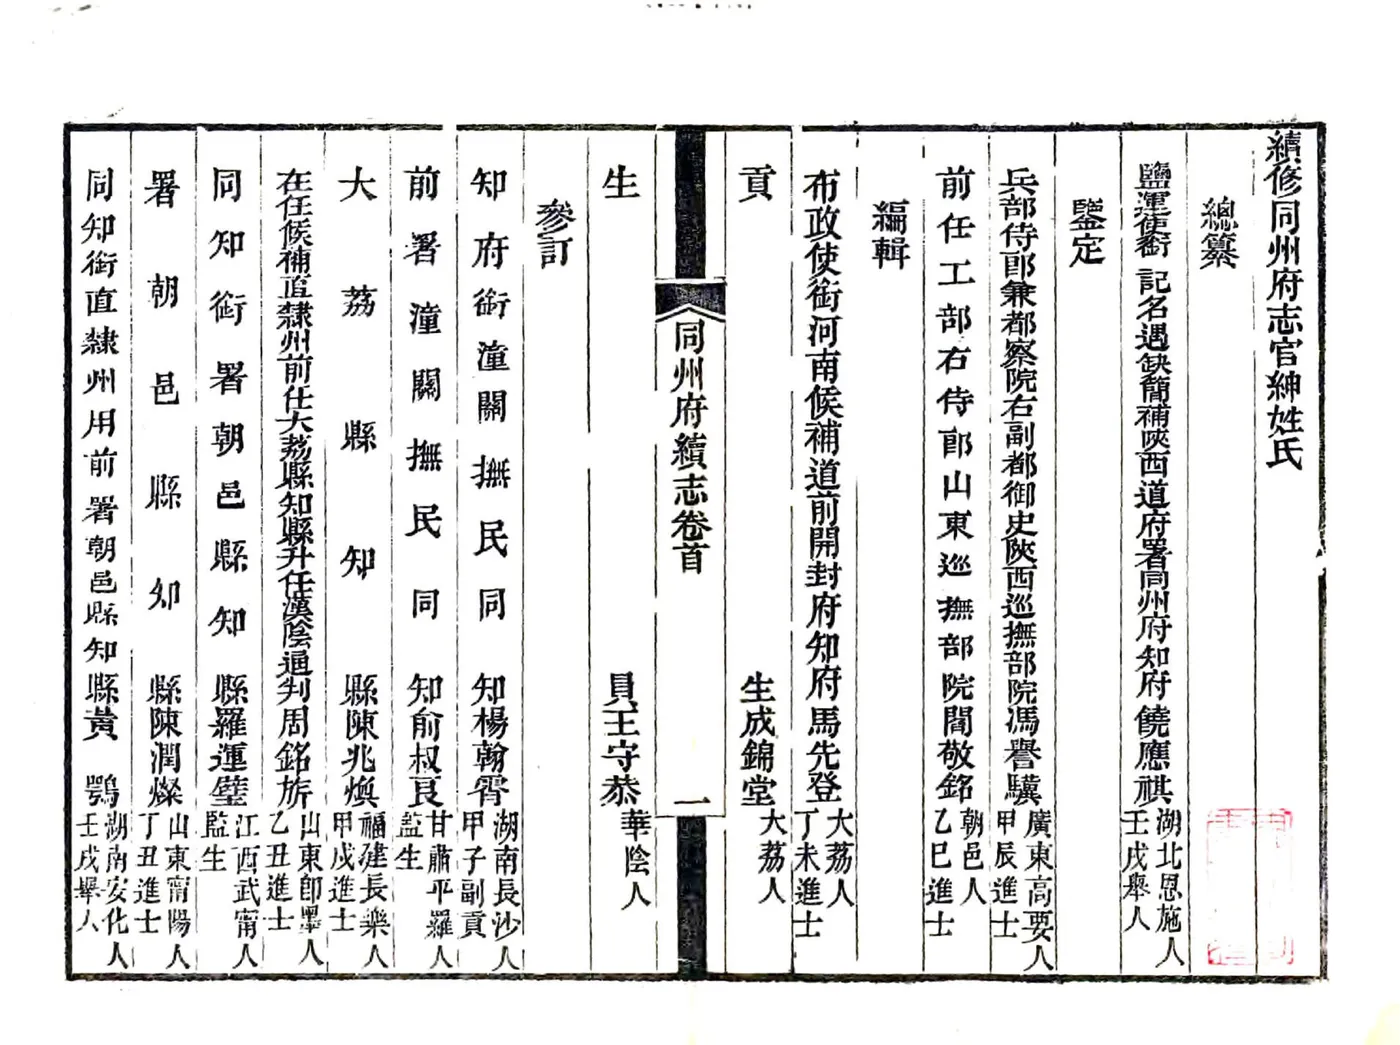 續修同州府志官紳姓氏
總纂
鹽運使銜記名遇缺簡補陝西道府署同州府知府饒應祺湖北恩施人壬戌舉人
鑒定
兵部侍郎兼都察院右副都御史陝西巡撫部院馮譽驥廣東高要人甲辰進士
前任工部右侍郎山東巡撫部院閻敬銘朝邑人乙巳進士
編輯
布政使銜河南候補道前開封府知府馬先登大荔人丁未進士
貢生成錦堂大荔人
同州府續志卷首
一
生員王守恭華陰人
參訂
知府銜潼關撫民同知楊翰霄湖南長沙人甲子副貢
前署潼關撫民同知俞叔良甘肅平羅人監生
大荔縣知縣陳兆煥福建長樂人甲戌進士
在任候補直隸州前任大荔縣知縣升任漢陰通判周銘旂山東卽墨人乙丑進士
同知銜署朝邑縣知縣羅運璧江西武甯人監生
署朝邑縣知縣陳潤燦山東甯陽人丁丑進士
同知銜直隸州用前署朝邑縣知縣黃鶚湖南安化人壬戌舉人